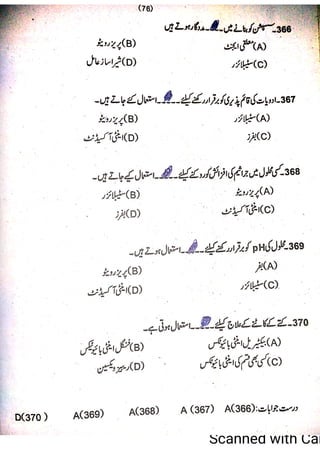 (76)
366۔ سسپنشن کو بنانے میں ۔ مددگار ہوتے ہیں
(A) معلقی ایجنٹ (B) پریزرویٹو
(C) سٹیبلائزر (D) شیرا ساز عامل
367۔ ادویات کی قائم پذیری کو برقرار رکھنے کیلئے ۔ استعمال کئے جاتے ہیں۔
(A) سٹیبلائزر (B) پریزرویٹو
(C) بفرز (D) اینٹی آکسیڈنٹ
368۔ کسی محلول میں جراثیم کی افزائش کو روکنے کیلئے ۔ استعمال کیے جاتے ہیں۔
(A) پریزرویٹو (B) سٹیبلائزر
(C) اینٹی آکسیڈنٹ (D) بفرز
369۔ محلول کی pH کو برقرار رکھنے کیلئے ۔ استعمال ہوتے ہیں۔
(A) بفر (B) پریزرویٹو
(C) سٹیبلائزر (D) اینٹی آکسیڈنٹ
370۔ کتے کے کاٹنے کے علاج کیلئے ۔ استعمال ہوتی ہے۔
(A) بیکٹیریل اینٹی بائیوٹکس (B) فنگل اینٹی بائیوٹکس
(C) کسی بھی قسم کی اینٹی بائیوٹکس (D) ریبیز ویکسین
درست جوابات: A(366) A (367) A(368) A(369) D(370 )
Scanned with Ca